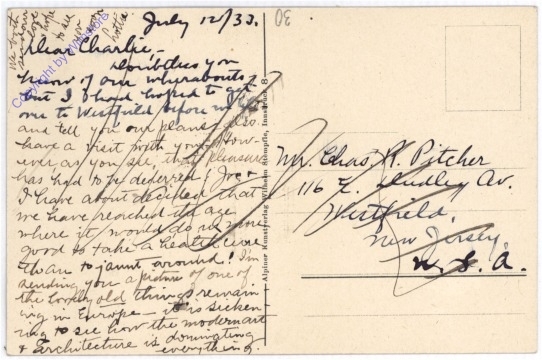 July 12/33.
Dear Charlie,—
Doubtless you
know of our whereabouts,
but I had hoped to get
out to Westfield before we left
and tell you our plans, also
have a visit with you. How-
ever as you see, that pleasure
has had to be deferred. Joe &
I have about decided that
we have reached the age
where it would do us more
good to take a health cure
than to jaunt around! I'm
sending you a picture of one of
the lovely old things remain-
ing in Europe — it is sicken-
ing to see how the modern art
& architecture is dominating
everything.
We both
send our
love &
hope
to see
you
soon
Lottie
Mr. Chas. R. Pitcher
116 E. Dudley Av.
Westfield,
New Jersey
U. S. A.
Alpiner Kunstverlag Wilhelm Stempfle, Innsbruck 8
30
Copyright by